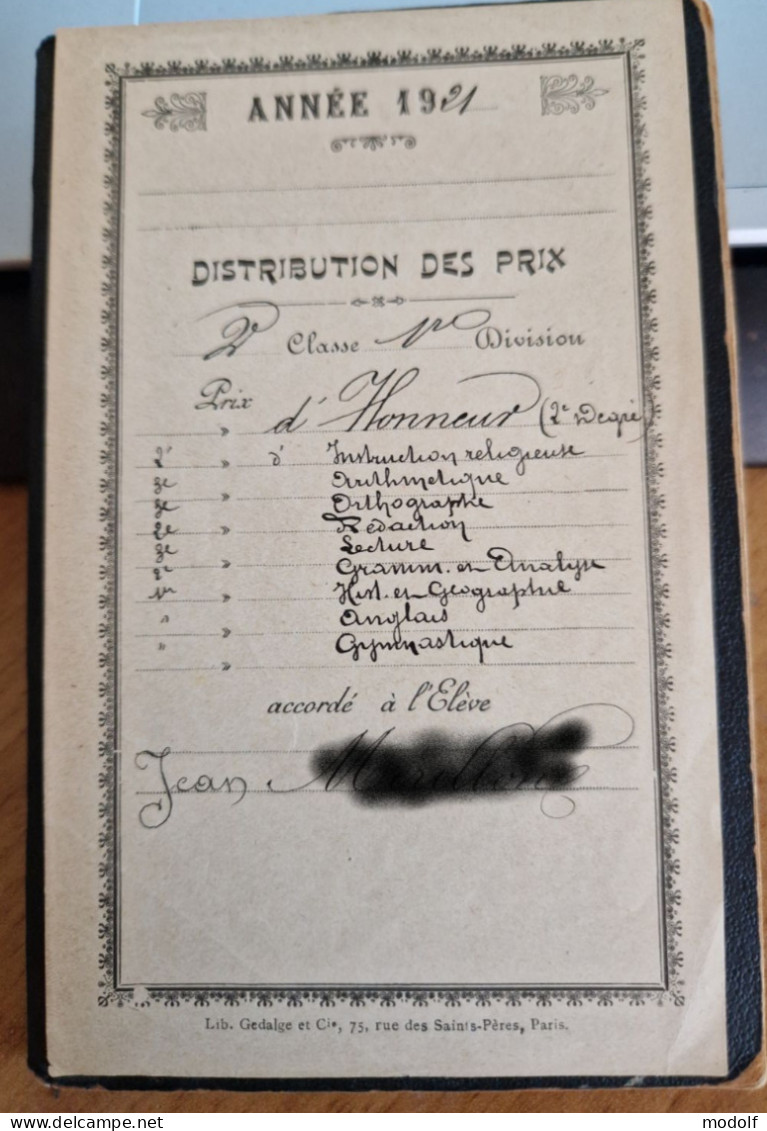 ANNÉE 1921
DISTRIBUTION DES PRIX
2e Classe 1re Division
Prix
» d'Honneur (2e Degré)
2e » d' Instruction religieuse
3e » Arithmetique
3e » Orthographe
2e » Rédaction
3e » Lecture
2e » Gramm. et Analyse
1er » Hist. et Géographie
" » Anglais
" » Gymnastique
»
accordé à l'Elève
Jean
Lib. Gedalge et Cie, 75, rue des Saints-Pères, Paris.
modolf